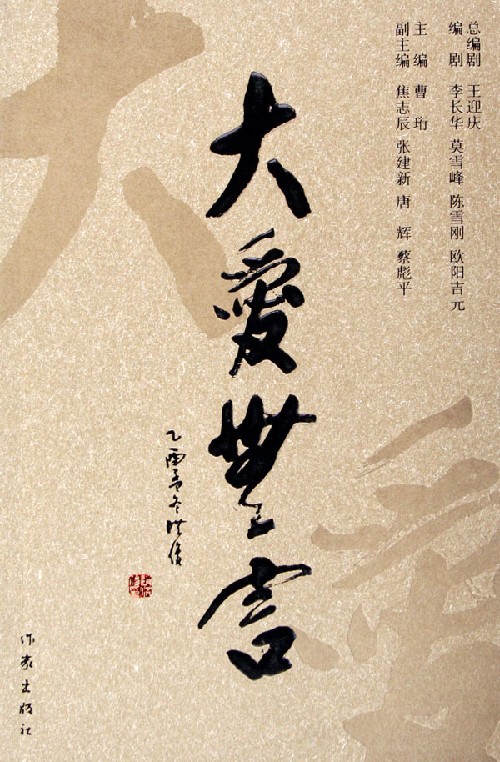 总编剧 王迎庆
编剧 李长华 莫雪峰 陈雪刚 欧阳吉元
主编 曹珩
副主编 焦志辰 张建新 唐辉 蔡彪平
大爱無言
作家出版社